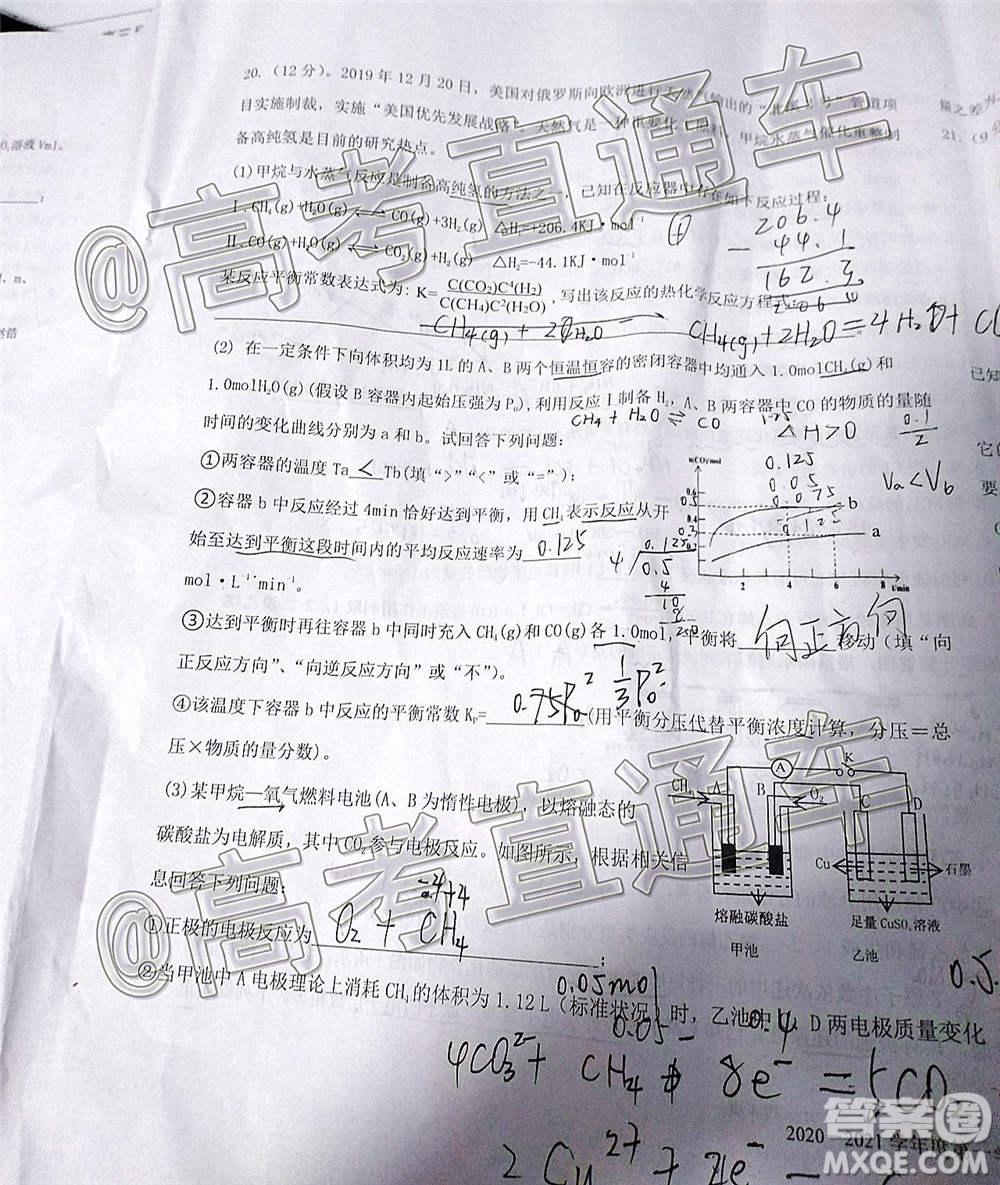 20.（12分）。2019年12月20日，美国对俄罗斯向欧洲进行天然气输出的“北溪二号”管道项
目实施制裁，实施“美国优先发展战略”。天然气是一种重要化工原料，甲烷水蒸气催化重整制
备高纯氢是目前的研究热点。
(1)甲烷与水蒸气反应是制备高纯氢的方法之一，已知在反应器中存在如下反应过程：
Ⅰ.CH₄(g)+H₂O(g) ⇌ CO(g)+3H₂(g) △H₁=+206.4KJ·mol⁻¹
Ⅱ.CO(g)+H₂O(g) ⇌ CO₂(g)+H₂(g) △H₂=-44.1KJ·mol⁻¹
206.4
- 44.1
162.3
某反应平衡常数表达式为：K= C(CO₂)C⁴(H₂) / C(CH₄)C²(H₂O)，写出该反应的热化学反应方程式：
CH₄(g) + 2H₂O → CH₄(g)+2H₂O = 4H₂
(2) 在一定条件下向体积均为1L的A、B两个恒温恒容的密闭容器中均通入1.0molCH₄(g)和
1.0molH₂O(g)(假设B容器内起始压强为P₀),利用反应Ⅰ制备H₂，A、B两容器中CO的物质的量随
CH₄ + H₂O ⇌ CO
△H>0
0.1/2
时间的变化曲线分别为a和b。试回答下列问题：
①两容器的温度Ta < Tb(填“>”“<”或“=”)；
②容器b中反应经过4min恰好达到平衡，用CH₄表示反应从开
始至达到平衡这段时间内的平均反应速率为 0.125
mol·L⁻¹·min⁻¹。
n(CO)/mol
0.6
0.5
0.4
0.3
0.125
0.05
0.075
b
a
Va<Vb
2 4 6 8 t/min
③达到平衡时再往容器b中同时充入CH₄(g)和CO(g)各1.0mol，平衡将 向正方向 移动（填“向
正反应方向”、“向逆反应方向”或“不”）。
④该温度下容器b中反应的平衡常数Kₚ= 0.75P₀² (用平衡分压代替平衡浓度计算，分压＝总
1/3 P₀²
压×物质的量分数）。
(3)某甲烷—氧气燃料电池(A、B为惰性电极)，以熔融态的
碳酸盐为电解质，其中CO₂参与电极反应。如图所示，根据相关信
息回答下列问题：
CH₄ A B O₂ A K C D
Cu 石墨
熔融碳酸盐 足量CuSO₄溶液
甲池 乙池
①正极的电极反应为 O₂ + CH₄ ；
②当甲池中A电极理论上消耗CH₄的体积为1.12L（标准状况）时，乙池中C、D两电极质量变化
0.05mol
0.05
0.4
0.5
4CO₃²⁻ + CH₄
8e⁻ =
2Cu²⁺ +
2020—2021学年
量之差
21.（9
已知
要
溶液Vml。
@高考直通车
@高考直通车
答案圈
MXQE.COM